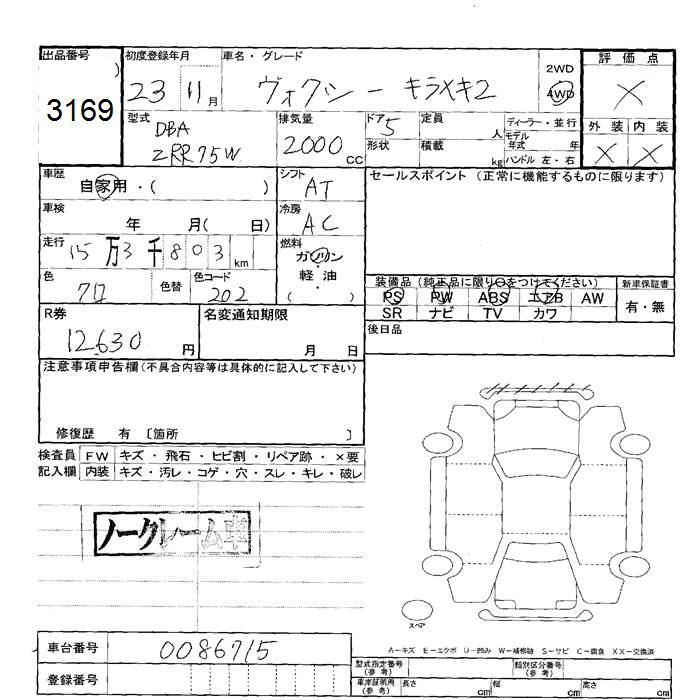 出品番号
3169
初度登録年月
23 11月
車名・グレード
ヴォクシー キラメキ2
2WD
4WD
評価点
X
外装 内装
X X
型式
DBA
ZRR75W
排気量
2000 CC
ドア
5
形状
定員
人
積載
kg
ディーラー・並行
モデル
年式 年
ハンドル 左・右
車歴
自家用・( )
シフト
AT
セールスポイント (正常に機能するものに限ります)
車検
年 月( 日)
冷房
AC
走行
15万3千803km
燃料
ガソリン
・
軽油
( )
色
クロ
色替
色コード
202
装備品 (純正品に限り○をつけてください)
PS PW ABS エアB AW
SR ナビ TV カワ
新車保証書
有・無
R券
12,630 円
名変通知期限
月 日
後日品
注意事項申告欄(不具合内容等は具体的に記入して下さい)
修復歴 有 〔箇所 〕
検査員 FW キズ・飛石・ヒビ割・リペア跡・×要
記入欄 内装 キズ・汚レ・コゲ・穴・スレ・キレ・破レ
ノークレーム車
スペア
A－キズ E－エクボ U－凹み W－補修跡 S－サビ C－腐食 XX－交換済
車台番号
0086715
登録番号
型式指定番号
(参考)
類別区分番号
(参考)
車庫証明用
(参考)
長さ cm
幅 cm
高さ cm